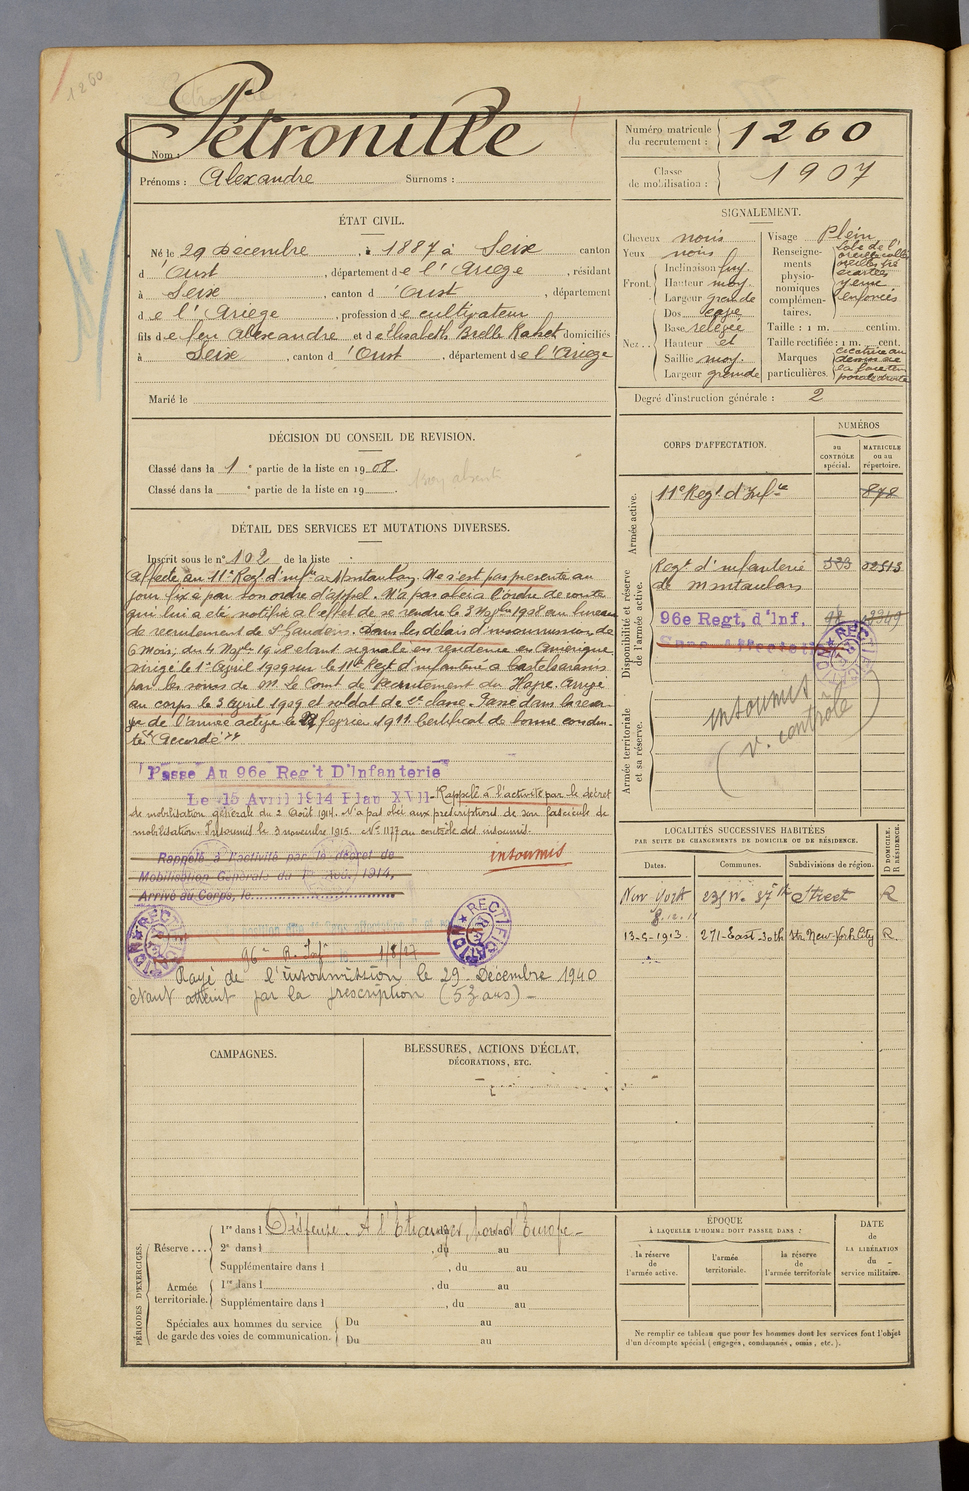 1260
Nom : Pétronille
Prénoms : Alexandre Surnoms :
Numéro matricule du recrutement : 1260
Classe de mobilisation : 1907
ÉTAT CIVIL.
Né le 29 Décembre 1887 à Seix canton
d'Oust, département de l'Ariège, résidant
à Seix, canton d'Oust, département
de l'Ariège, profession de cultivateur
fils de feu Alexandre et de Elisabeth domiciliés
à Seix, canton d'Oust, département de l'Ariège
Marié le
SIGNALEMENT.
Cheveux noirs
Yeux noirs
Front. Inclinaison fuy.
Hauteur moy.
Largeur grande
Nez.. Dos
Base relevée
Hauteur et
Saillie moy.
Largeur grande
Visage Plein
Renseignements physionomiques complémentaires.
Lobe de l'
écartés
enfoncés
Taille : 1 m. centim.
Taille rectifiée : 1 m. cent.
Marques particulières. cicatrice au
dessus de
la face tem
porale droite
Degré d'instruction générale : 2
DÉCISION DU CONSEIL DE REVISION.
Classé dans la 1e partie de la liste en 1908.
Classé dans la e partie de la liste en 19
absent
DÉTAIL DES SERVICES ET MUTATIONS DIVERSES.
Inscrit sous le n° 102 de la liste
Affecté au 11e Regt d'infie à Montauban. Ne s'est pas présenté au
jour fixé par son ordre d'appel. N'a pas obéi à l'ordre de route
qui lui a été notifié à l'effet de se rendre le 3 1908 au bureau
de recrutement de St Gaudens. Dans les délais d'insoumission de
6 mois, du 4 1908 étant signalé en résidence en Amérique
Dirigé le 1er Avril 1909 sur le 11e Regt d'infanterie à Castelsarrasin
par les soins de M. le Comt de Recrutement du Havre. Arrivé
au corps le 3 Avril 1909 et soldat de 2e classe. Passé dans la réser
ve de l'armée active le février 1911. Certificat de bonne condui
te "Accordé"
Passé Au 96e Reg't D'Infanterie
Le 15 Avril 1914 Plan XVII - Rappelé à l'activité par le décret
de mobilisation générale du 2 Août 1914. N'a pas obéi aux prescriptions de son fascicule de
mobilisation. Insoumis le 3 novembre 1915. No 1177 au contrôle des insoumis.
Rappelé à l'activité par le décret de
Mobilisation Générale du 1er Août 1914,
Arrivé au Corps, le
insoumis
RECTIFICATION
RECTIFICATION
96e R. Infie 1/8/27
Rayé de l'insoumission le 29 Décembre 1940
étant atteint par la prescription (53 ans) -
CORPS D'AFFECTATION.
NUMÉROS
au CONTRÔLE spécial.
MATRICULE ou au répertoire.
Armée active.
11e Regt d'Infie 878
Disponibilité et réserve de l'armée active.
Regt d'infanterie
de Montauban
96e Regt. d'Inf.
Sans Affectation
RECTIFICATION
Armée territoriale et sa réserve.
insoumis
(v. contrôle)
LOCALITÉS SUCCESSIVES HABITÉES
PAR SUITE DE CHANGEMENTS DE DOMICILE OU DE RÉSIDENCE.
D DOMICILE. R RÉSIDENCE.
Dates. Communes. Subdivisions de région.
New York 235 W. 37th Street R
8.12.11
13-5-1913. 271-East-30th New-York City R.
CAMPAGNES.
BLESSURES, ACTIONS D'ÉCLAT,
DÉCORATIONS, ETC.
PÉRIODES D'EXERCICES.
Réserve ... 1re dans l Dispensé. A l'Etranger, hors d'Europe -
2e dans l , du au
Supplémentaire dans l , du au
Armée territoriale. 1re dans l , du au
Supplémentaire dans l , du au
Spéciales aux hommes du service de garde des voies de communication. Du au
Du au
ÉPOQUE
À LAQUELLE L'HOMME DOIT PASSER DANS :
la réserve de l'armée active.
l'armée territoriale.
la réserve de l'armée territoriale
DATE de LA LIBÉRATION du service militaire.
Ne remplir ce tableau que pour les hommes dont les services font l'objet
d'un décompte spécial (engagés, condamnés, omis, etc.).